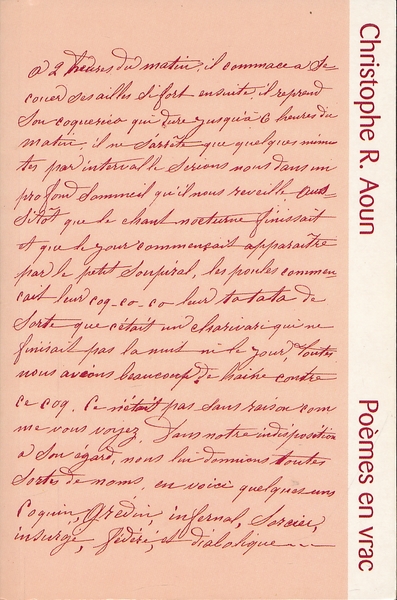 à 2 heures du matin; il commace a se-
couer ses ailes si fort ensuite il reprend
son coquerico qui dure jusqu'à 6 heures du
matin, il ne sarrête que quelques minu
tes par intervalle serions nous dans un
profond sommeil qu'il nous reveille Aus-
sitôt que le chant nocturne finissait
et que le jour commençait apparaître
par le petit soupiral, les poules commen
cait leur coq-co-co leur tatata de
sorte que cétait un charivari qui ne
finisait pas la nuit ni le jour, toutes
nous avions beaucoup de haine contre
ce coq. Ce nétait pas sans raison com
me vous voyez. Dans notre indisposition
a son égard, nous lui donnions toutes
sortes de noms, en voici quelques uns
Coquin, Grédin, infernal, Sorcier,
insurgé, fédéré, et diabolique ---
Christophe R. Aoun
Poèmes en vrac